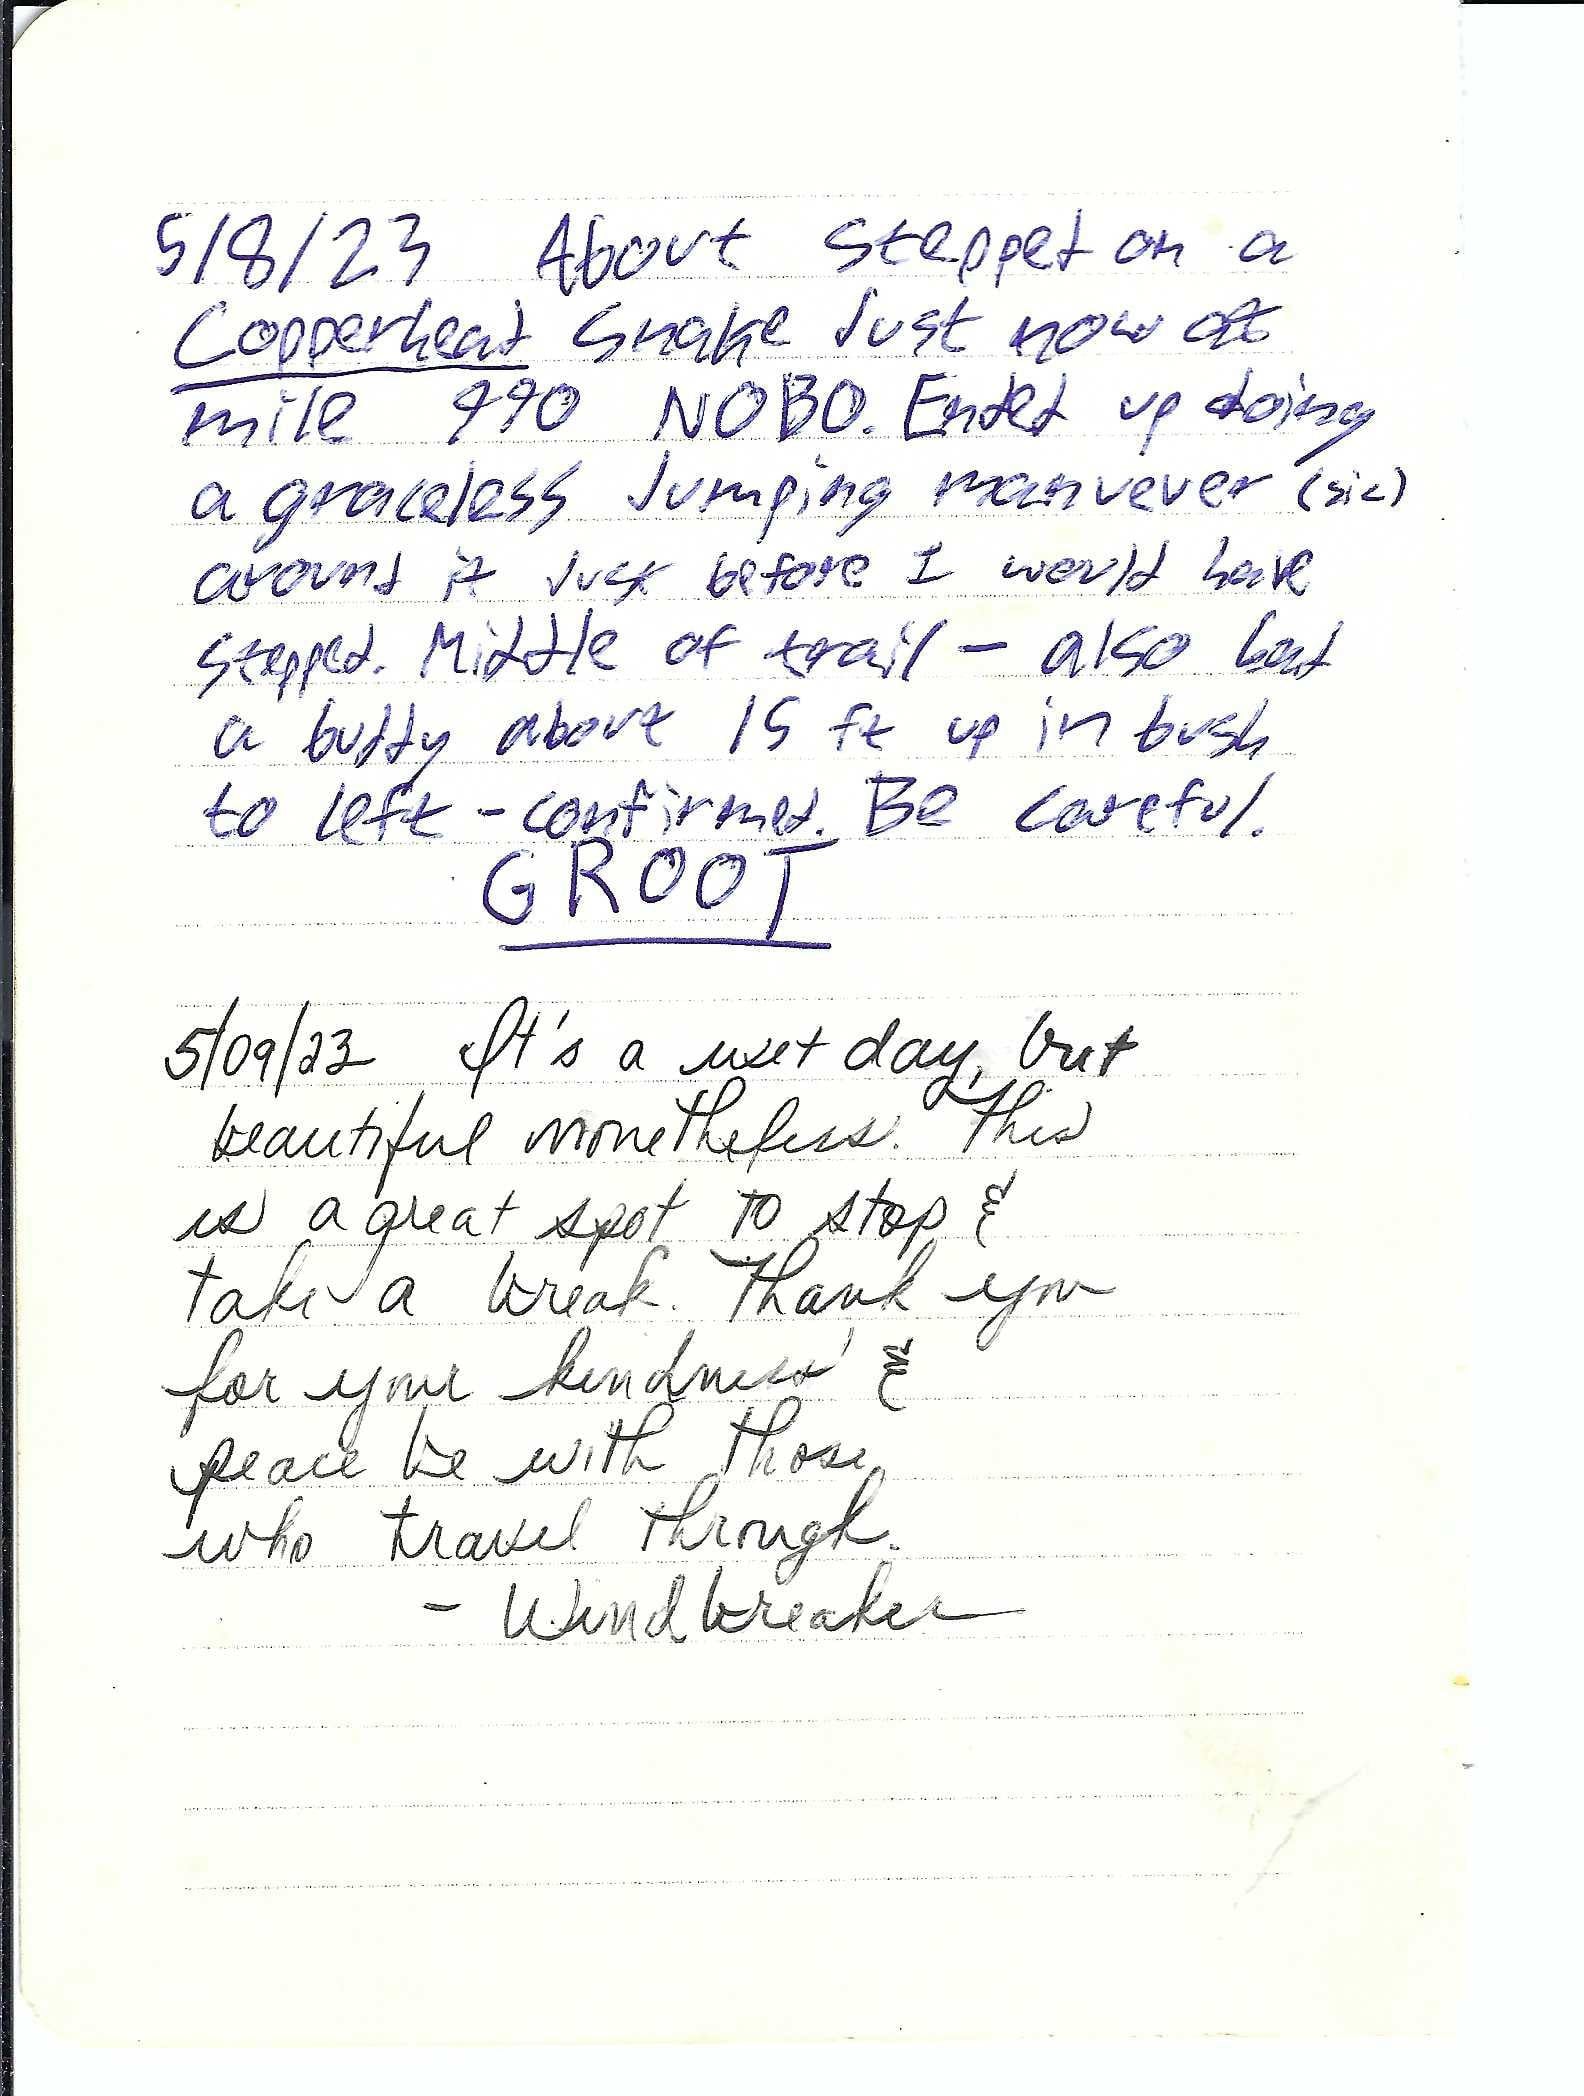 5/8/23 About stepped on a
Copperhead snake just now at
mile 990 NOBO. Ended up doing
a graceless jumping manuever (sic)
around it just before I would have
stepped. Middle of trail - also had
a buddy about 15 ft up in bush
to left - confirmed. Be careful.
GROOT
5/09/23 It's a wet day, but
beautiful nonetheless. This
is a great spot to stop &
take a break. Thank you
for your kindness &
peace be with those
who travel through.
- Windbreaker